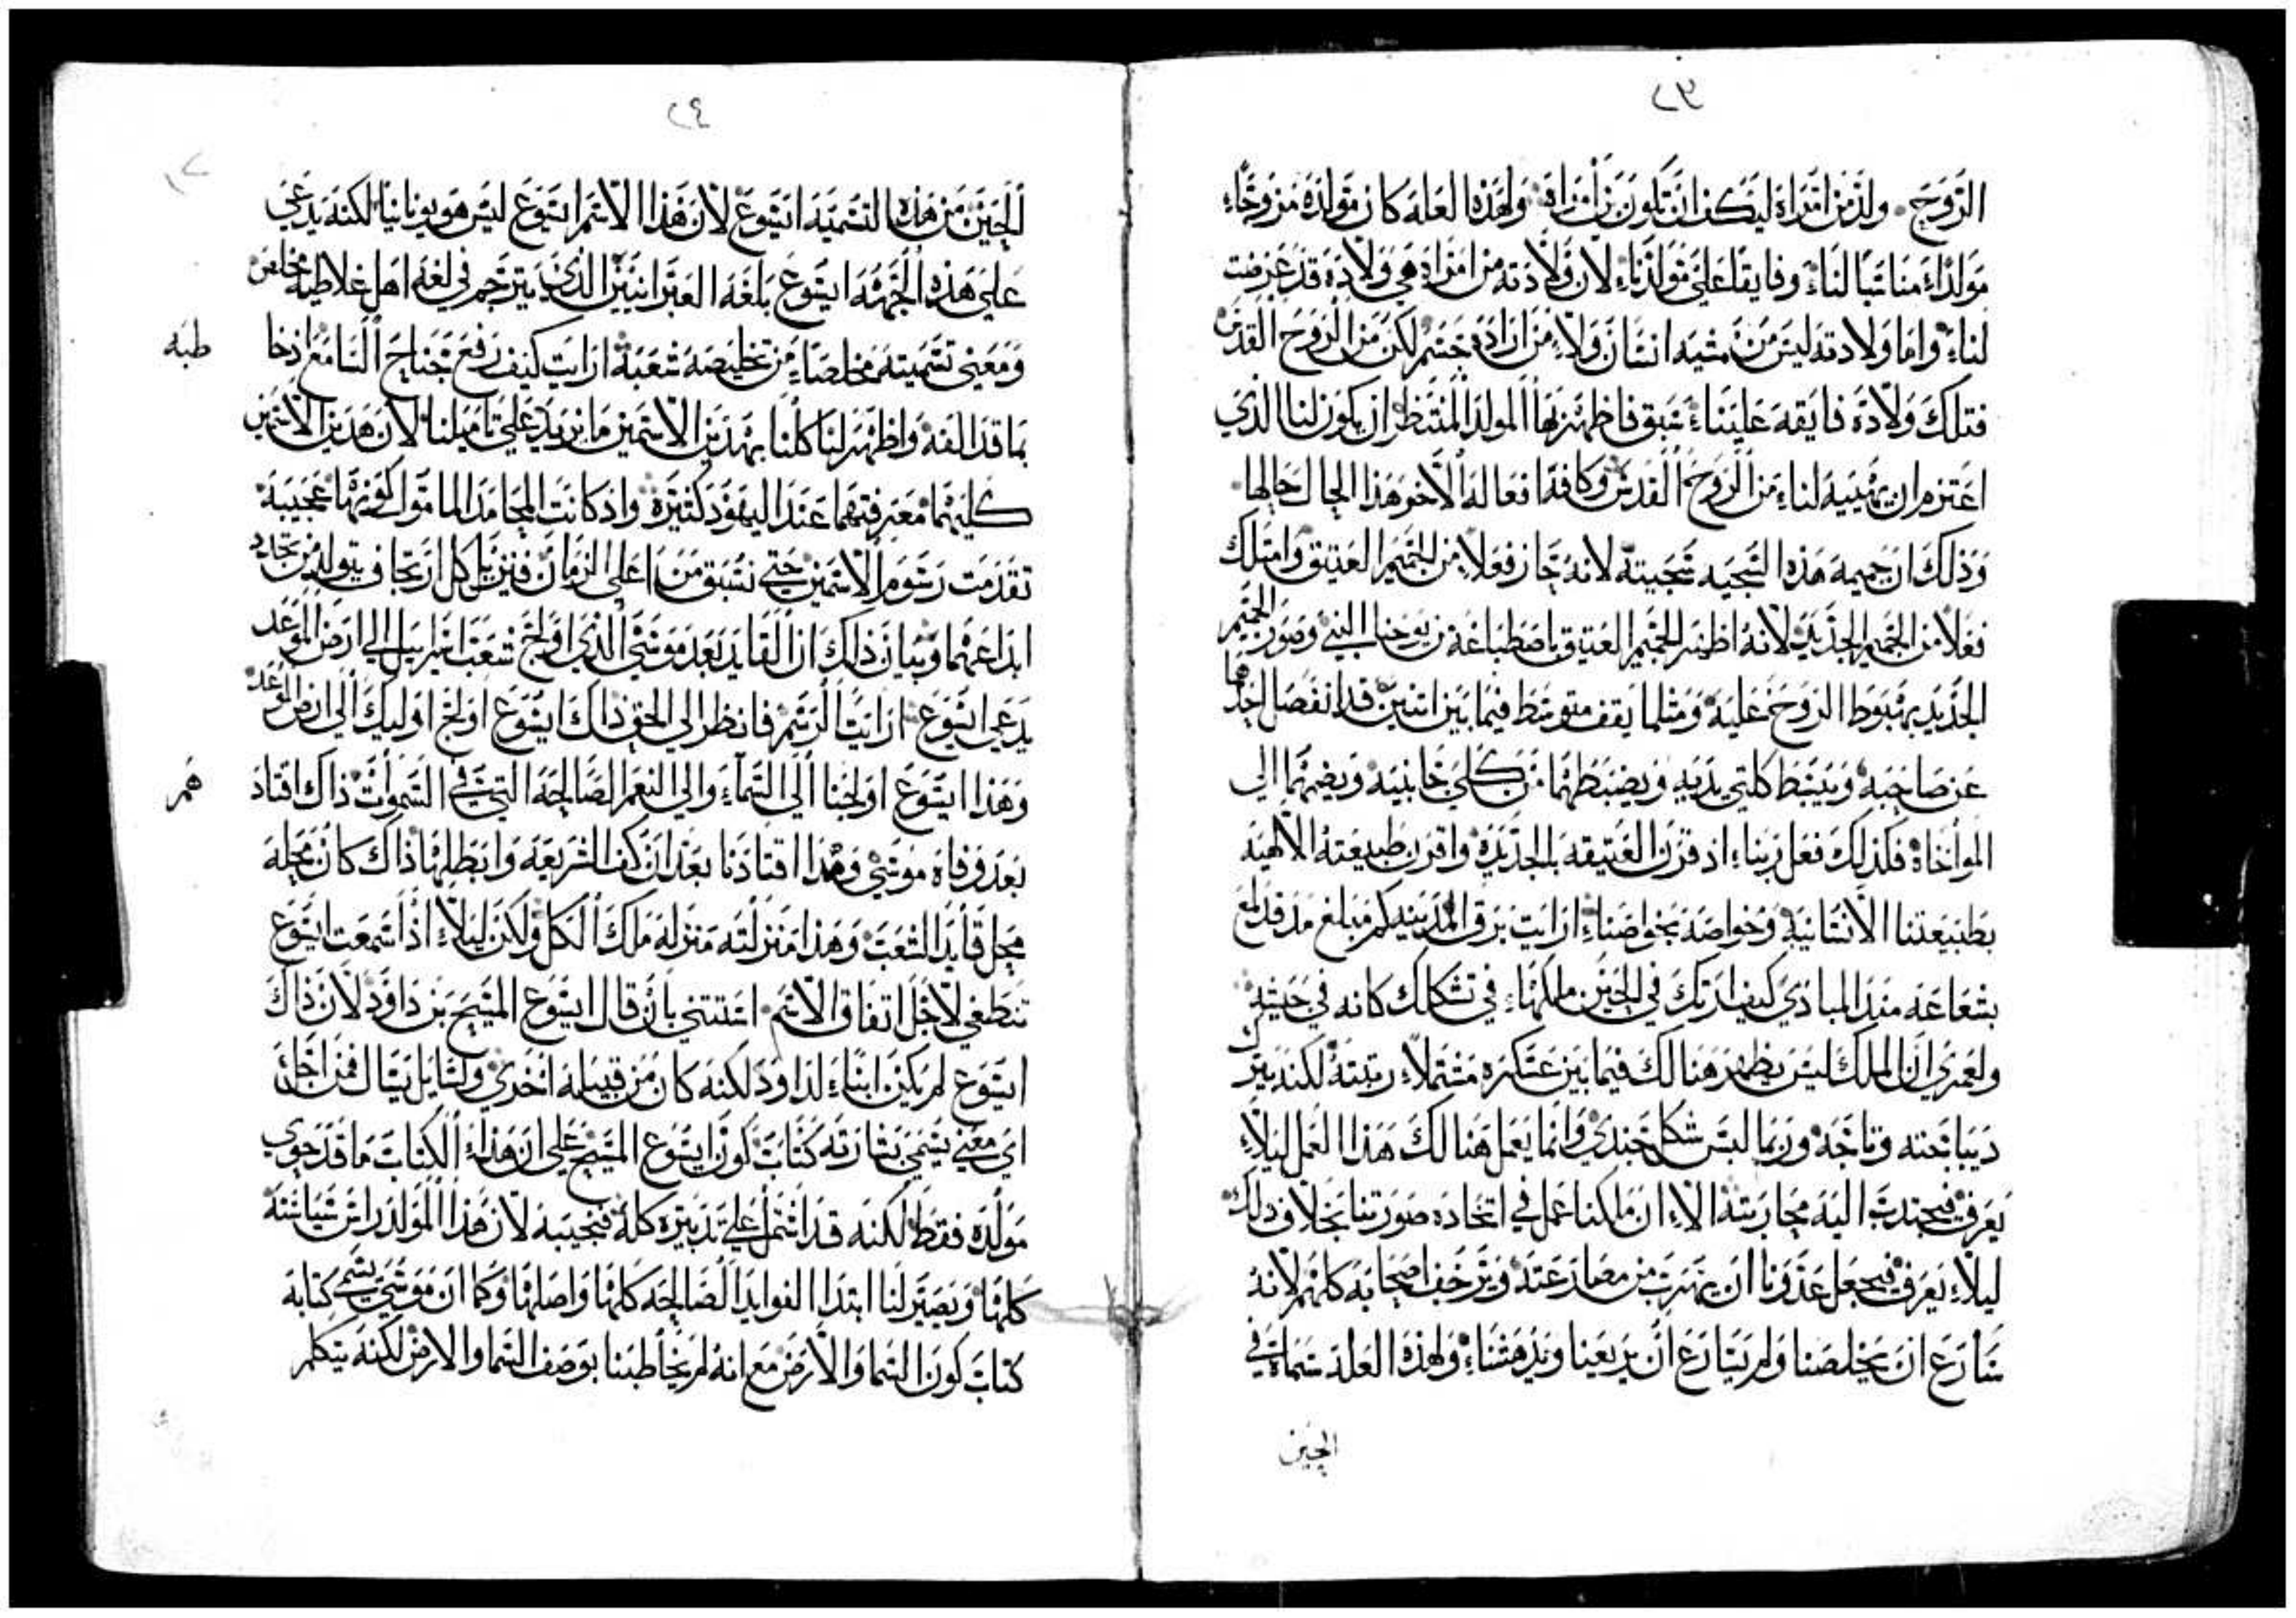 ٢٣
الروح. ولد من امراه ليكف ان تكون من ابن اه ولهذه العله كان مولده مزوجاء
مولداء مناسبا لناء وفايقا على مولدناء لان ولادته من امراه هي ولاده قد عرضت
لناء واما ولادته ليس من مشيه انسان ولا من اراده جسم لكن من الروح القدس
فتلك ولاده فايقه علينناء سبق فاظهر بها المولد المنتظر ان يكون لنا الذي
اعتزم ان يهبيه لناء من الروح القدس وكافة افعاله الاخر هذا الحال حالها
وذلك ان حميمه هذه السجيه سجيته لانه جاز فعلا من الحميم العتيق وامتلك
فعلا من الحميم الجديد لانه اظهر الحميم العتيق باصطباغه من يوحنا النبي وصور الحميم
الجديد بهبوط الروح عليه ومثلما يقف متوسط فيما بين اثنين قد انفصل احدهما
عن صاحبه ويبسط كلتي يديه ويضبطهما من كلي جانبيه ويضمهما الي
المواخاه فكذلك فعل ربناء اذ قرن العتيقه بالجديده واقرن طبيعته الالهيه
بطبيعتنا الانسانيه وخواصه بخواصناء ارايت برق المدينه كم مبلغ مد قد لمع
بشعاعه منذ المبادي كيف ارتك في الحين ملكهاء في تشكلك كانه في جيشه
ولعمري ان الملك ليس يظهر هنالك فيما بين عسكره مشتملاء رتبته لكنه يترك
ديباجته وتاجه وربما لبس شكل جندي وانما يعمل هنالك هذا العمل ليلاء
يعرف فيجذب اليه محاربته الاء ان ملكنا عمل في اتخاده صورتنا بخلاف ذلك
ليلاء يعرف فيجعل عدونا ان يهرب من مصادعته ويرجف اصحابه كلهم لانه
سارع ان يخلصنا ولم يسارع ان يريعنا ويدهشناء ولهذه العله سماه في
الحين
٢٤
الحين من هذه التسميه ايسوع لان هذا الاسم ايسوع ليس هو يونانيا لكنه يدعى
على هذه الجهه ايسوع بلغه العبرانيين الذي يترجم في لغه اهل غلاطيه مخلص
ومعني تسميته مخلصاء من تخليصه شعبه ارايت كيف رفع جناح السامع اذ خا
طبه
بما قد الفه واظهر لنا كلنا بهدين الاسمين ما يزيد على تاميلنا لان هدين الاسمين
كليهما معرفتهما عند اليهود كثيره واذ كانت المحامد الماموا كونها عجيبه
تقدمت رسوم الاسمين حتى نسبق من اعلى الزمان فنزيل كل ارتجاف يتولد من تجديد
ابداعهما وبيان ذلك ان القايد بعد موسي الذي اولج شعب اسرايل الي ارض الموعد
يدعي ايسوع ارايت الرسم فانظر الي الحق ذاك ايسوع اولج اوليك الي ارض الموعد
وهذا ايسوع اولجنا الي السماء والي النعم الصالحه التي في السموات ذاك اقتاد
هم
بعد وفاه موسي وهذا اقتادنا بعد ان كف الشريعه وابطلها ذاك كان محله
محل قايد الشعب وهذا منزلته منزله ملك الكل ولكن ليلاء اذا سمعت ايسوع
تنطغي لاجل اتفاق الاسم استثني بان قال ايسوع المسيح بن داود لان ذاك
ايسوع لم يكن ابناء لداود لكنه كان من قبيله اخري ولسايل يسال فمن اجل
اي معني يسمي بشارته كتاب كون ايسوع المسيح على ان هذاء الكتاب ما قد حوي
مولده فقط لكنه قد اشتمل علي تدبيره كله فنجيبه لان هذا المولد راس سياسته
كلها ويصير لنا ابتدا الفوايد الصالحه كلها واصلها وكما ان موسي يسمي كتابه
كتاب كون السما والارض مع انه لم يخاطبنا بوصف السما والارض لكنه يتكلم